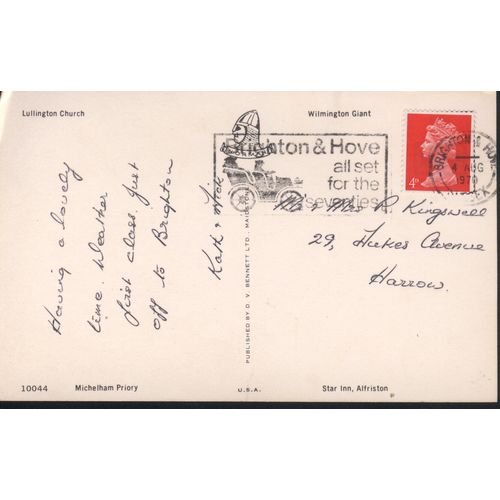 Lullington Church
Wilmington Giant
Brighton & Hove
all set
for the
seventies
BRIGHTON & HOVE
4 AUG
1970
4D
Having a lovely
time. Weather
first class, just
off to Brighton
Kath & Mick
Mr & Mrs R Kingswell
29, Avenue
Harrow.
PUBLISHED BY D. V. BENNETT LTD - MAIDSTONE
10044
Michelham Priory
U.S.A.
Star Inn, Alfriston